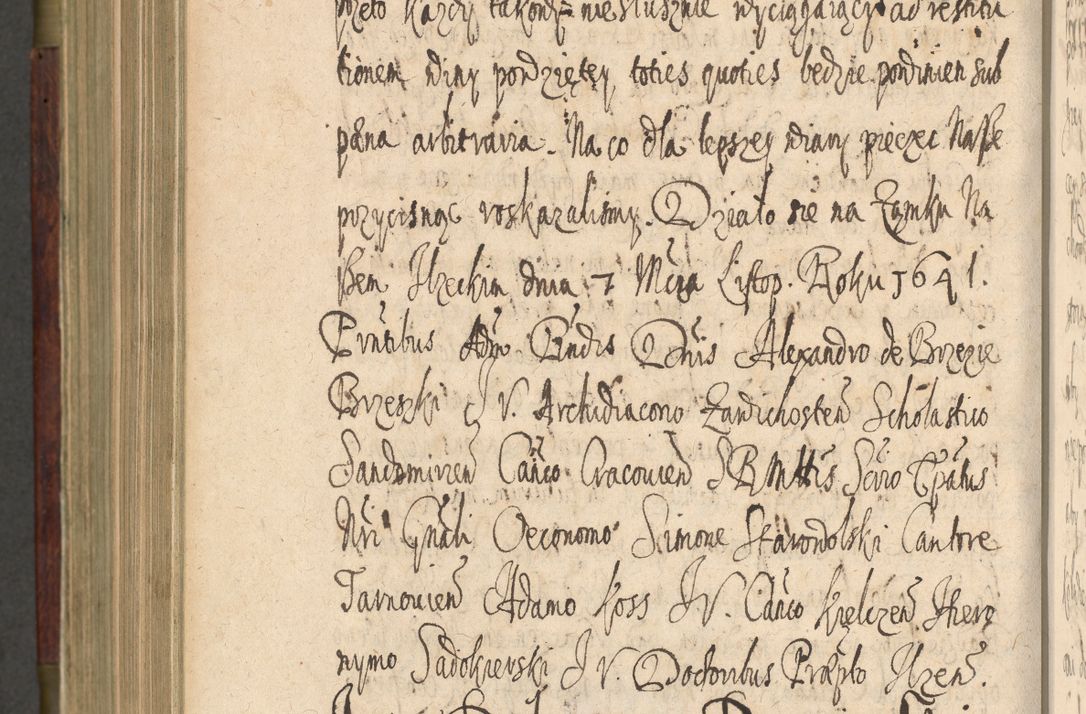 przeto kazdy takowy niesłusznie wyciągaiący ad restitu
tionem winy powziętey, toties quoties będzie powinien sub
pæna arbitraria. Na co dla lepszey wiary pieczęc Nasse
przycisnąc roskazalismy. Działo się na Zamku Na
ssem Ilzeckim dnia 7 Mcra Listop. Roku 1641.
Prntibus Adm Rndis Dnis Alexandro de Brzezie
Brzeski J V. Archidiacono Zawichosteñ Scholastico
Sandomireñ Cañco Cracovieñ S R Mttis Scrio Epatus
Nri Gnali Oeconomo Simone Starowolski Cantore
Tarnovieñ Adamo Koss J V. Cañco Kielceñ Hiero
nymo Sadokierski J V. Doctoribus Præpto Ilzeñ.